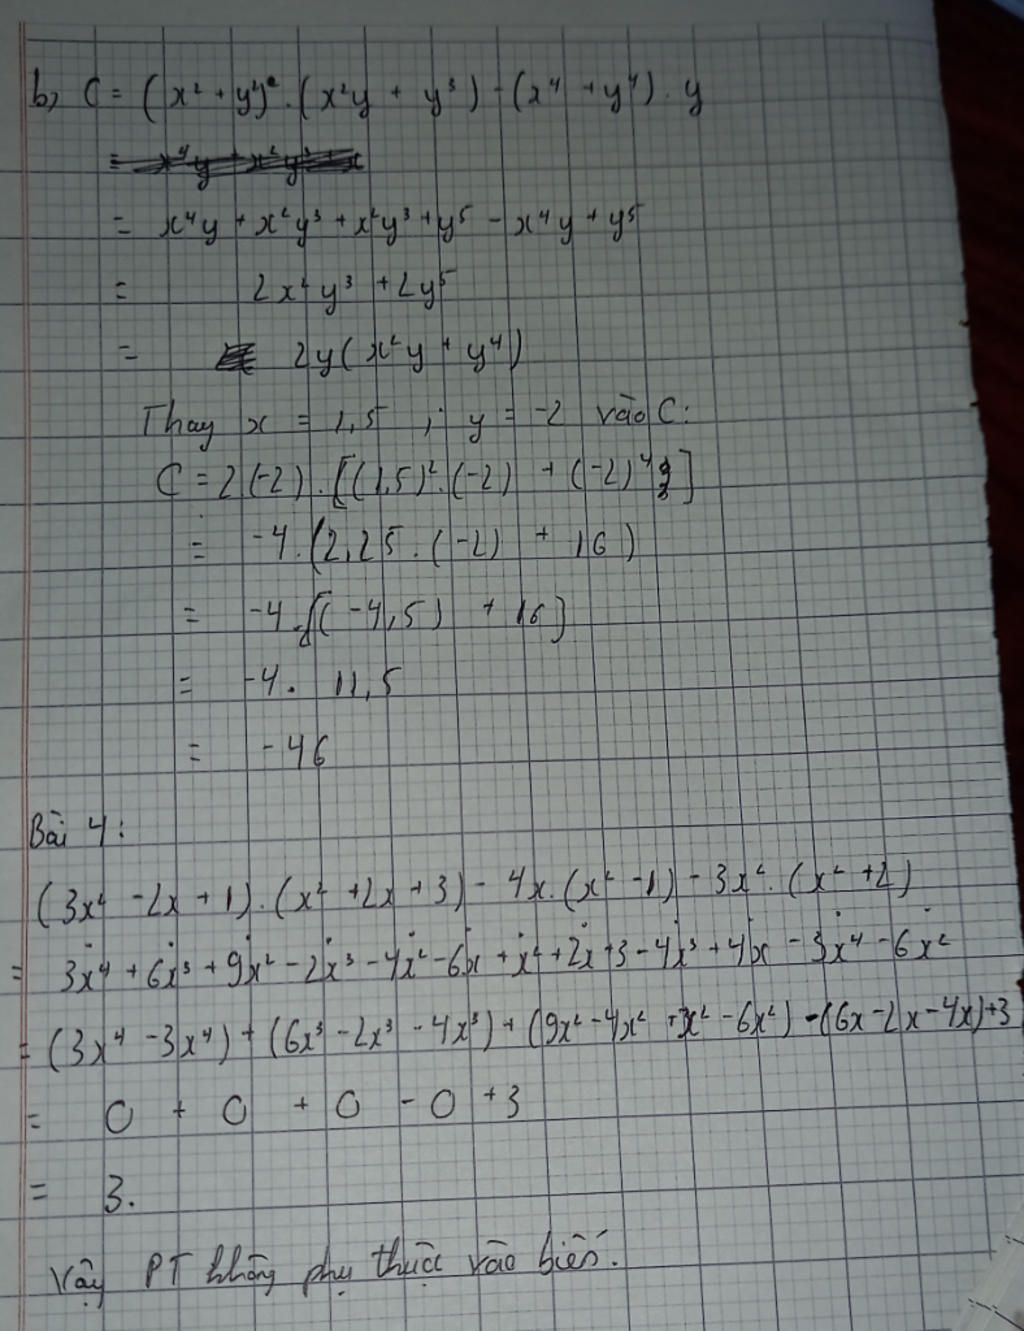 b, C = (x² + y²). (x²y + y³) - (x⁴ + y⁴). y
= x⁴y + x²y³ + x²y³ + y⁵ - x⁴y + y⁵
= 2x²y³ + 2y⁵
= 2y(x²y + y⁴)
Thay x = 1,5 ; y = -2 vào C:
C = 2(-2). [(1,5)².(-2) + (-2)⁴]
= -4.(2,25.(-2) + 16)
= -4.[(-4,5) + 16]
= -4. 11,5
= -46
Bài 4:
(3x² - 2x + 1).(x² + 2x + 3) - 4x.(x² - 1) - 3x².(x² + 2)
= 3x⁴ + 6x³ + 9x² - 2x³ - 4x² - 6x + x² + 2x + 3 - 4x³ + 4x - 3x⁴ - 6x²
= (3x⁴ - 3x⁴) + (6x³ - 2x³ - 4x³) + (9x² - 4x² + x² - 6x²) - (6x - 2x - 4x) + 3
= 0 + 0 + 0 - 0 + 3
= 3.
Vậy PT không phụ thuộc vào biến.